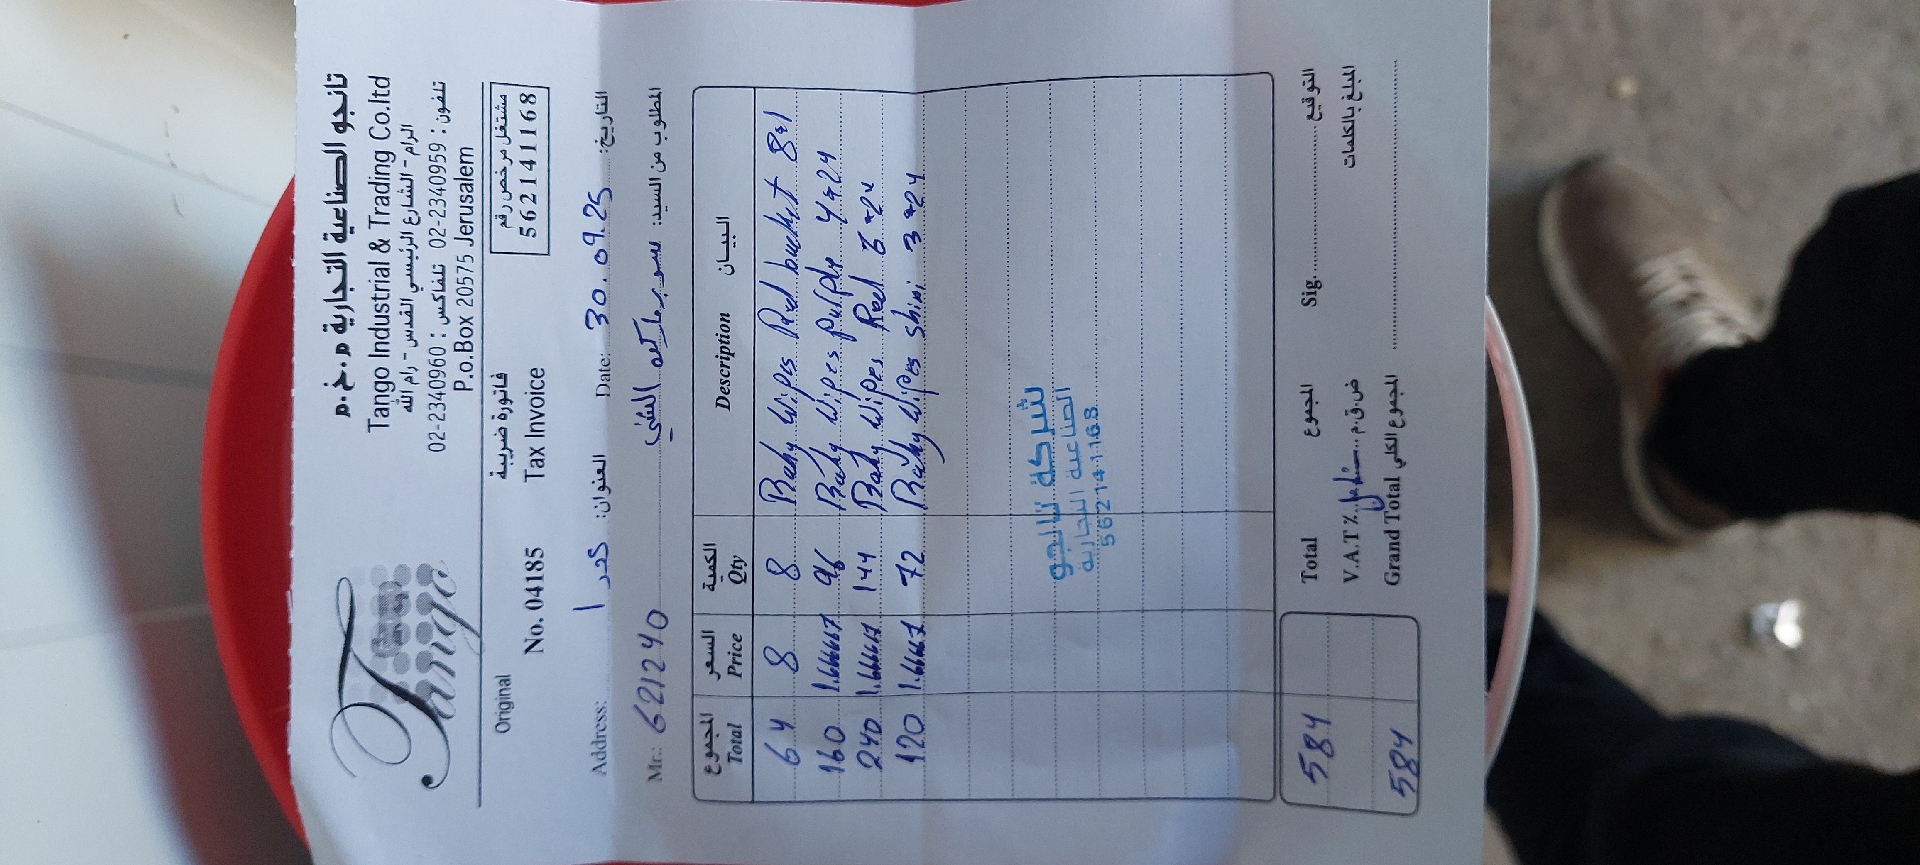 تانجو الصناعية التجارية م.خ.م
Tango Industrial & Trading Co.ltd
الرام - الشارع الرئيسي القدس - رام الله
تلفون : 02-2340959 تلفاكس : 02-2340960
P.o.Box 20575 Jerusalem
Tango
Original
فاتورة ضريبة
مشتغل مرخص رقم
No. 04185 Tax Invoice
562141168
Address: العنوان: Date: 30.09.25 التاريخ:
Mr.: 621240 سوبرماركت المطلوب من السيد:
المجموع السعر الكمية
Total Price Qty Description البيـــان
64 8 8 Baby Wipes Red bucket 8*1
160 1.66667 96 Baby Wipes purple 4*24
240 1.66667 144 Baby Wipes Red 6*24
120 1.6667 72 Baby Wipes shini 3*24
شركة تانجو
الصناعية التجارية
562141168
584 Total المجموع Sig التوقيع
V.A.T٪ شامل ض.ق.م المبلغ بالكلمات
584 Grand Total المجموع الكلي